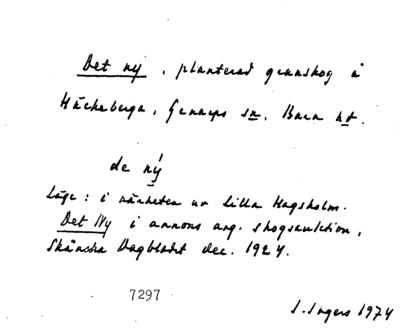 Det ny, planterad granskog å
Häckeberga, Genarps sn, Bara hd.
de ný
Läge: i närheten av Lilla Hagsholm.
Det Ny i annons ang. skogsauktion,
Skånska Dagbladet dec. 1924.
7297
I. Ingers 1974